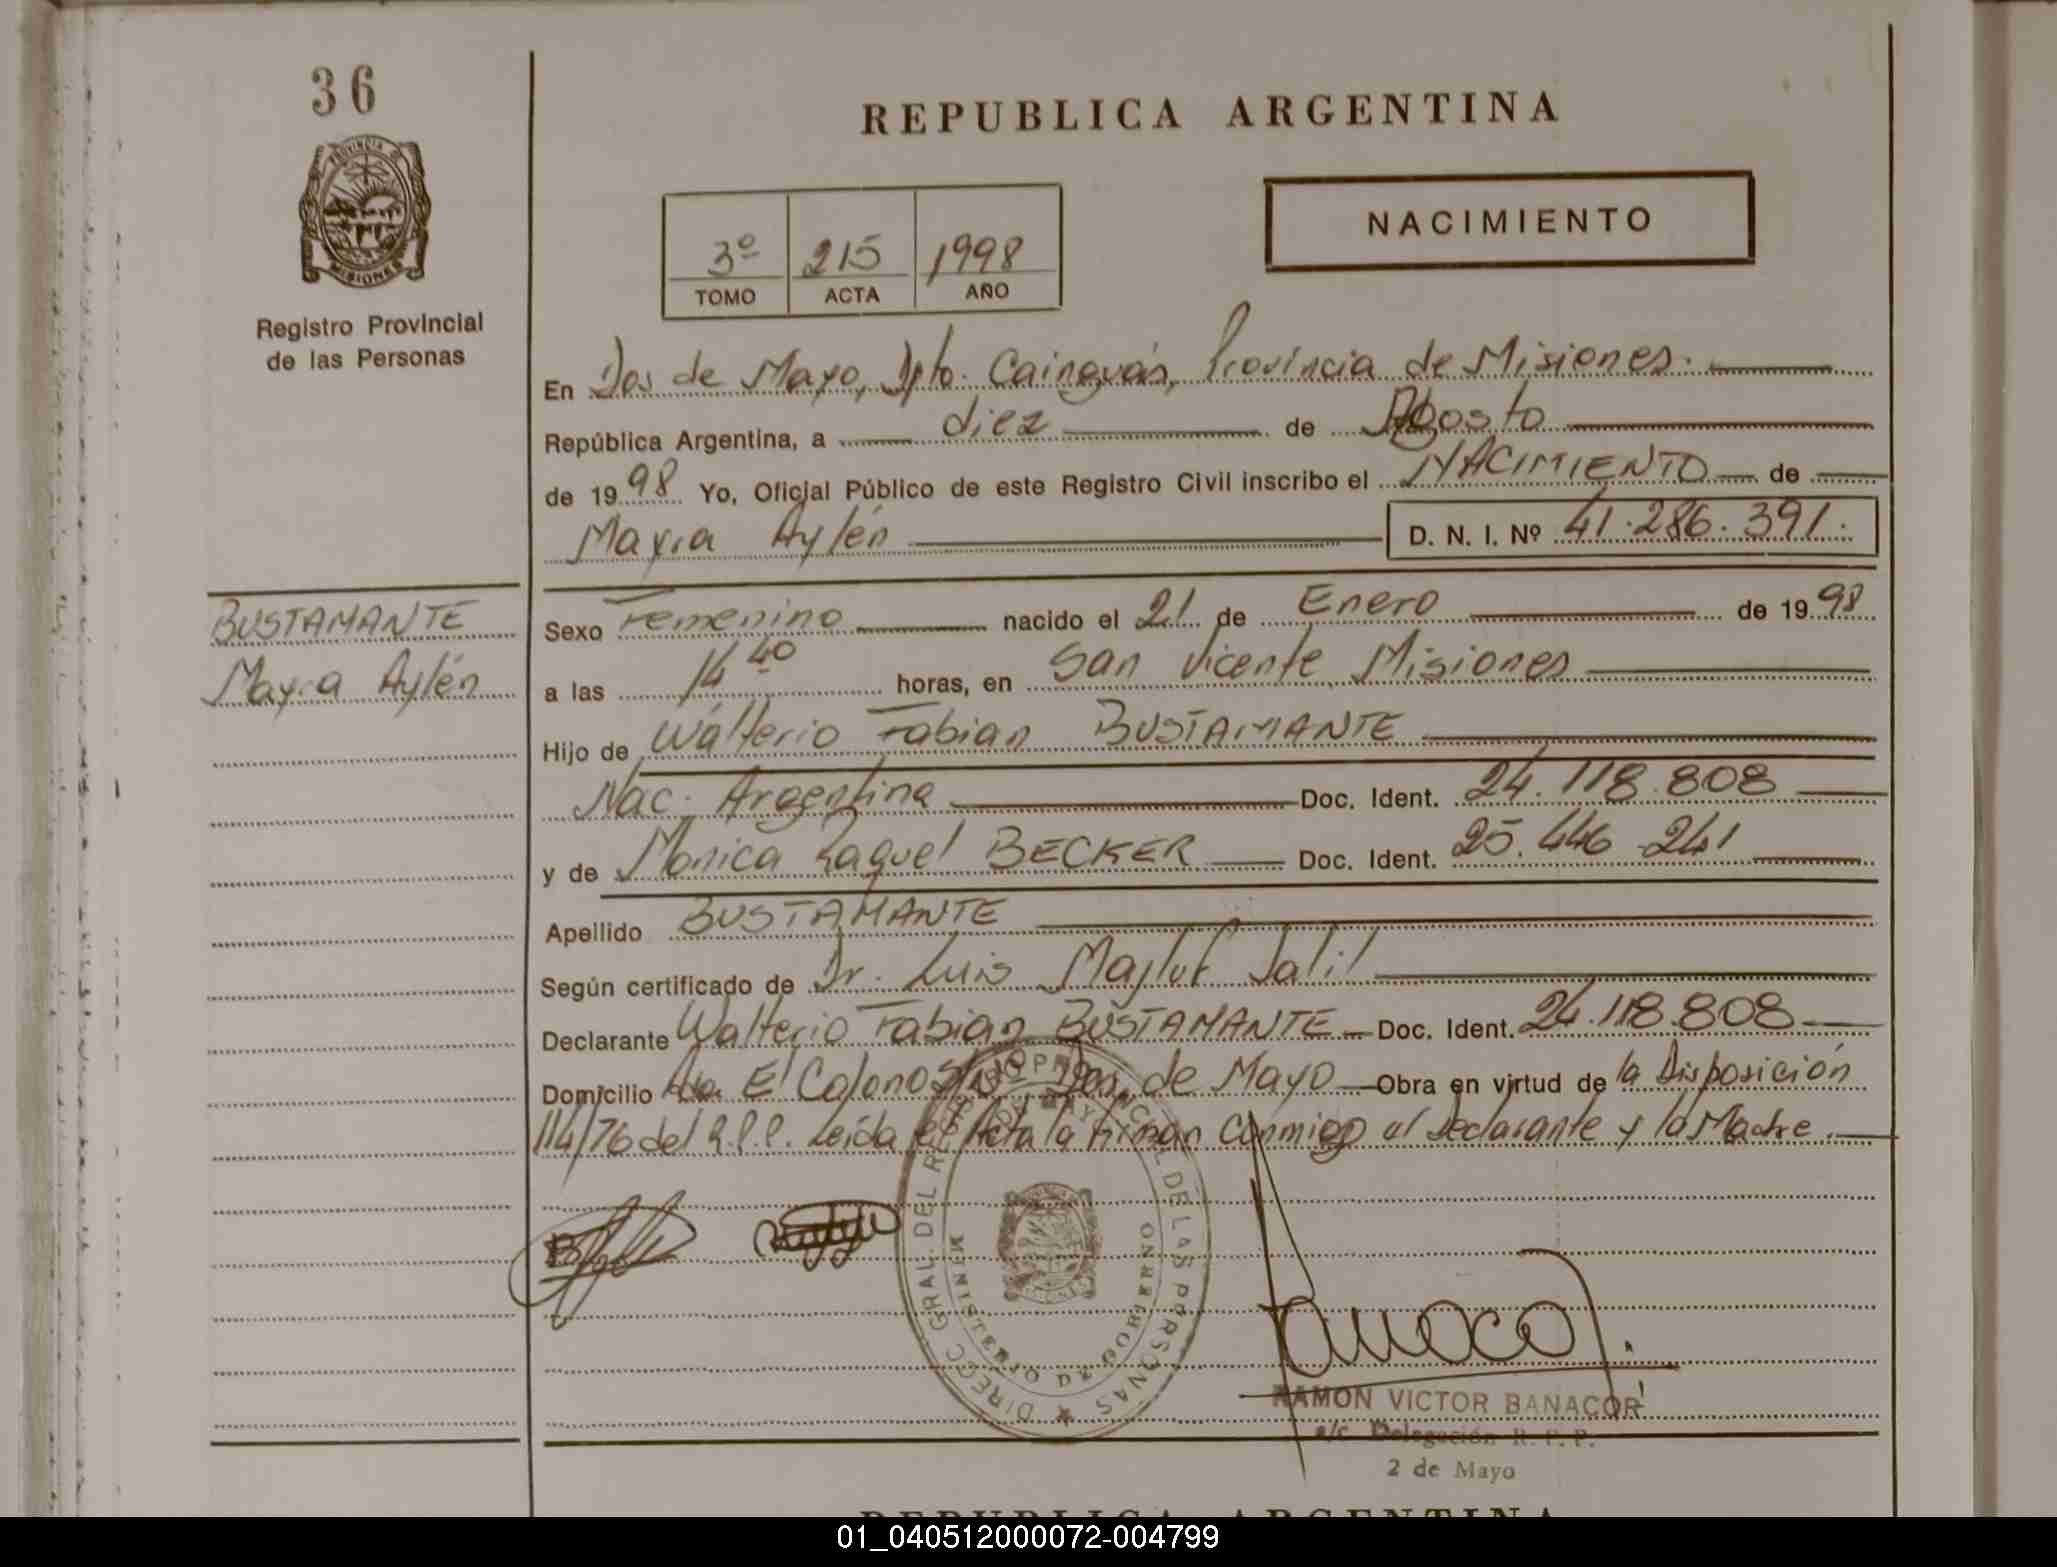 36
PROVINCIA D
MISIONES
Registro Provincial
de las Personas
BUSTAMANTE
Mayra Aylén
REPUBLICA ARGENTINA
3º 215 1998
TOMO ACTA AÑO
NACIMIENTO
En Dos de Mayo, Dpto. Cainguás, Provincia de Misiones.
República Argentina, a diez de Agosto
de 1998 Yo, Oficial Público de este Registro Civil inscribo el NACIMIENTO de
Mayra Aylén D. N. I. Nº 41.286.391.
Sexo Femenino nacido el 21 de Enero de 1998
a las 14 40 horas, en San Vicente Misiones
Hijo de Walterio Fabian BUSTAMANTE
Nac. Argentina Doc. Ident. 24.118.808
y de Monica Raquel BECKER Doc. Ident. 25.446.241
Apellido BUSTAMANTE
Según certificado de Dr. Luis Majluf Jalil
Declarante Walterio Fabian BUSTAMANTE Doc. Ident. 24.118.808
Domicilio Avda. El Colono S/Nº Dos de Mayo Obra en virtud de la Disposición
114/76 del R.P.P. Leída el Acta la firman Conmigo el Declarante y la Madre.
DIRECC GRAL. DEL REGISTRO PROVINCIAL DE LAS PERSONAS
MINISTERIO DE GOBIERNO
RAMON VICTOR BANACOR
a/c Delegación R. P. P.
2 de Mayo
REPUBLICA ARGENTINA
01_040512000072-004799